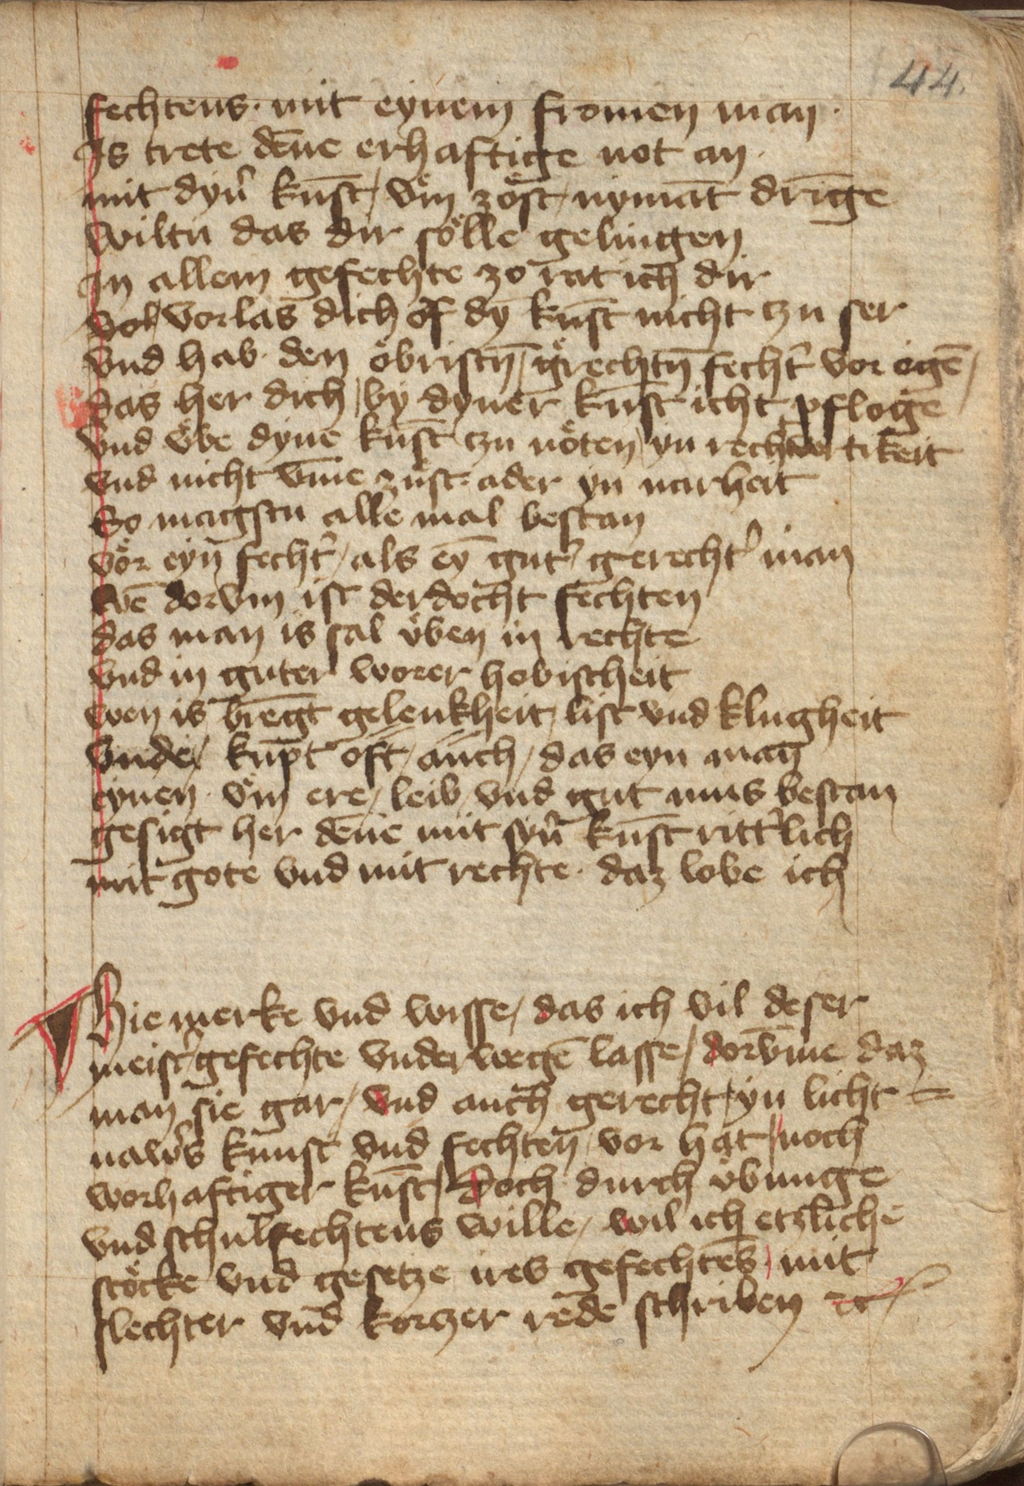 44.
fechtens · mit eynem fromen man ·
Is trete deñe erhaftige not an ·
mit dyn̄ kūst / vm̄ zöst / nymāt drīge
wiltu das dir sölle gelingen
In allem gefechte zo rat ich dir
vorlas dich of dy kūst nicht czu ser
vnd hab · den öbristn̄ / grechtn̄ fecht̄ vor ogē /
das her dich / by dyner kūst icht pfloge
vnd vbe dyne kūst czu nöten / yn rechtvertikeit
vnd nicht vm̄e züst · ader yn narheit
So magstu alle mal bestan
vör eyn̄ fecht̄ / als ey̅ gut̄ gerecht̄ man
wē dorvm ist derdocht fechten
das man is sal vben in rechte
vnd in guter worer hobischeit
wen is brēgt gelenkheit / list vnd klugheit
Vnde / kūpt oft / auch / das eyn man
eynen · vm̄ ere / leib / vnd gut mus bestan
gesigt her deñe mit syn̄ kūst ritt̄lich
mit gote vnd mit rechte · daz lobe ich
Hie merke vnd wisse / das ich vil deser
meist̄ gefechte vnder wegē lasse / dorvm̄e daz
man sie gar / vnd auch gerecht / yn licht =
naw̄s kunst vnd fechten / vor hat / noch
worhaftiger kūst / Doch durch vbunge
vnd schulfechtens wille / wil ich etzliche
stöcke vnd gesetze ires gefechtes / mit
slechter vnd korczer rede schriben ꝛc /